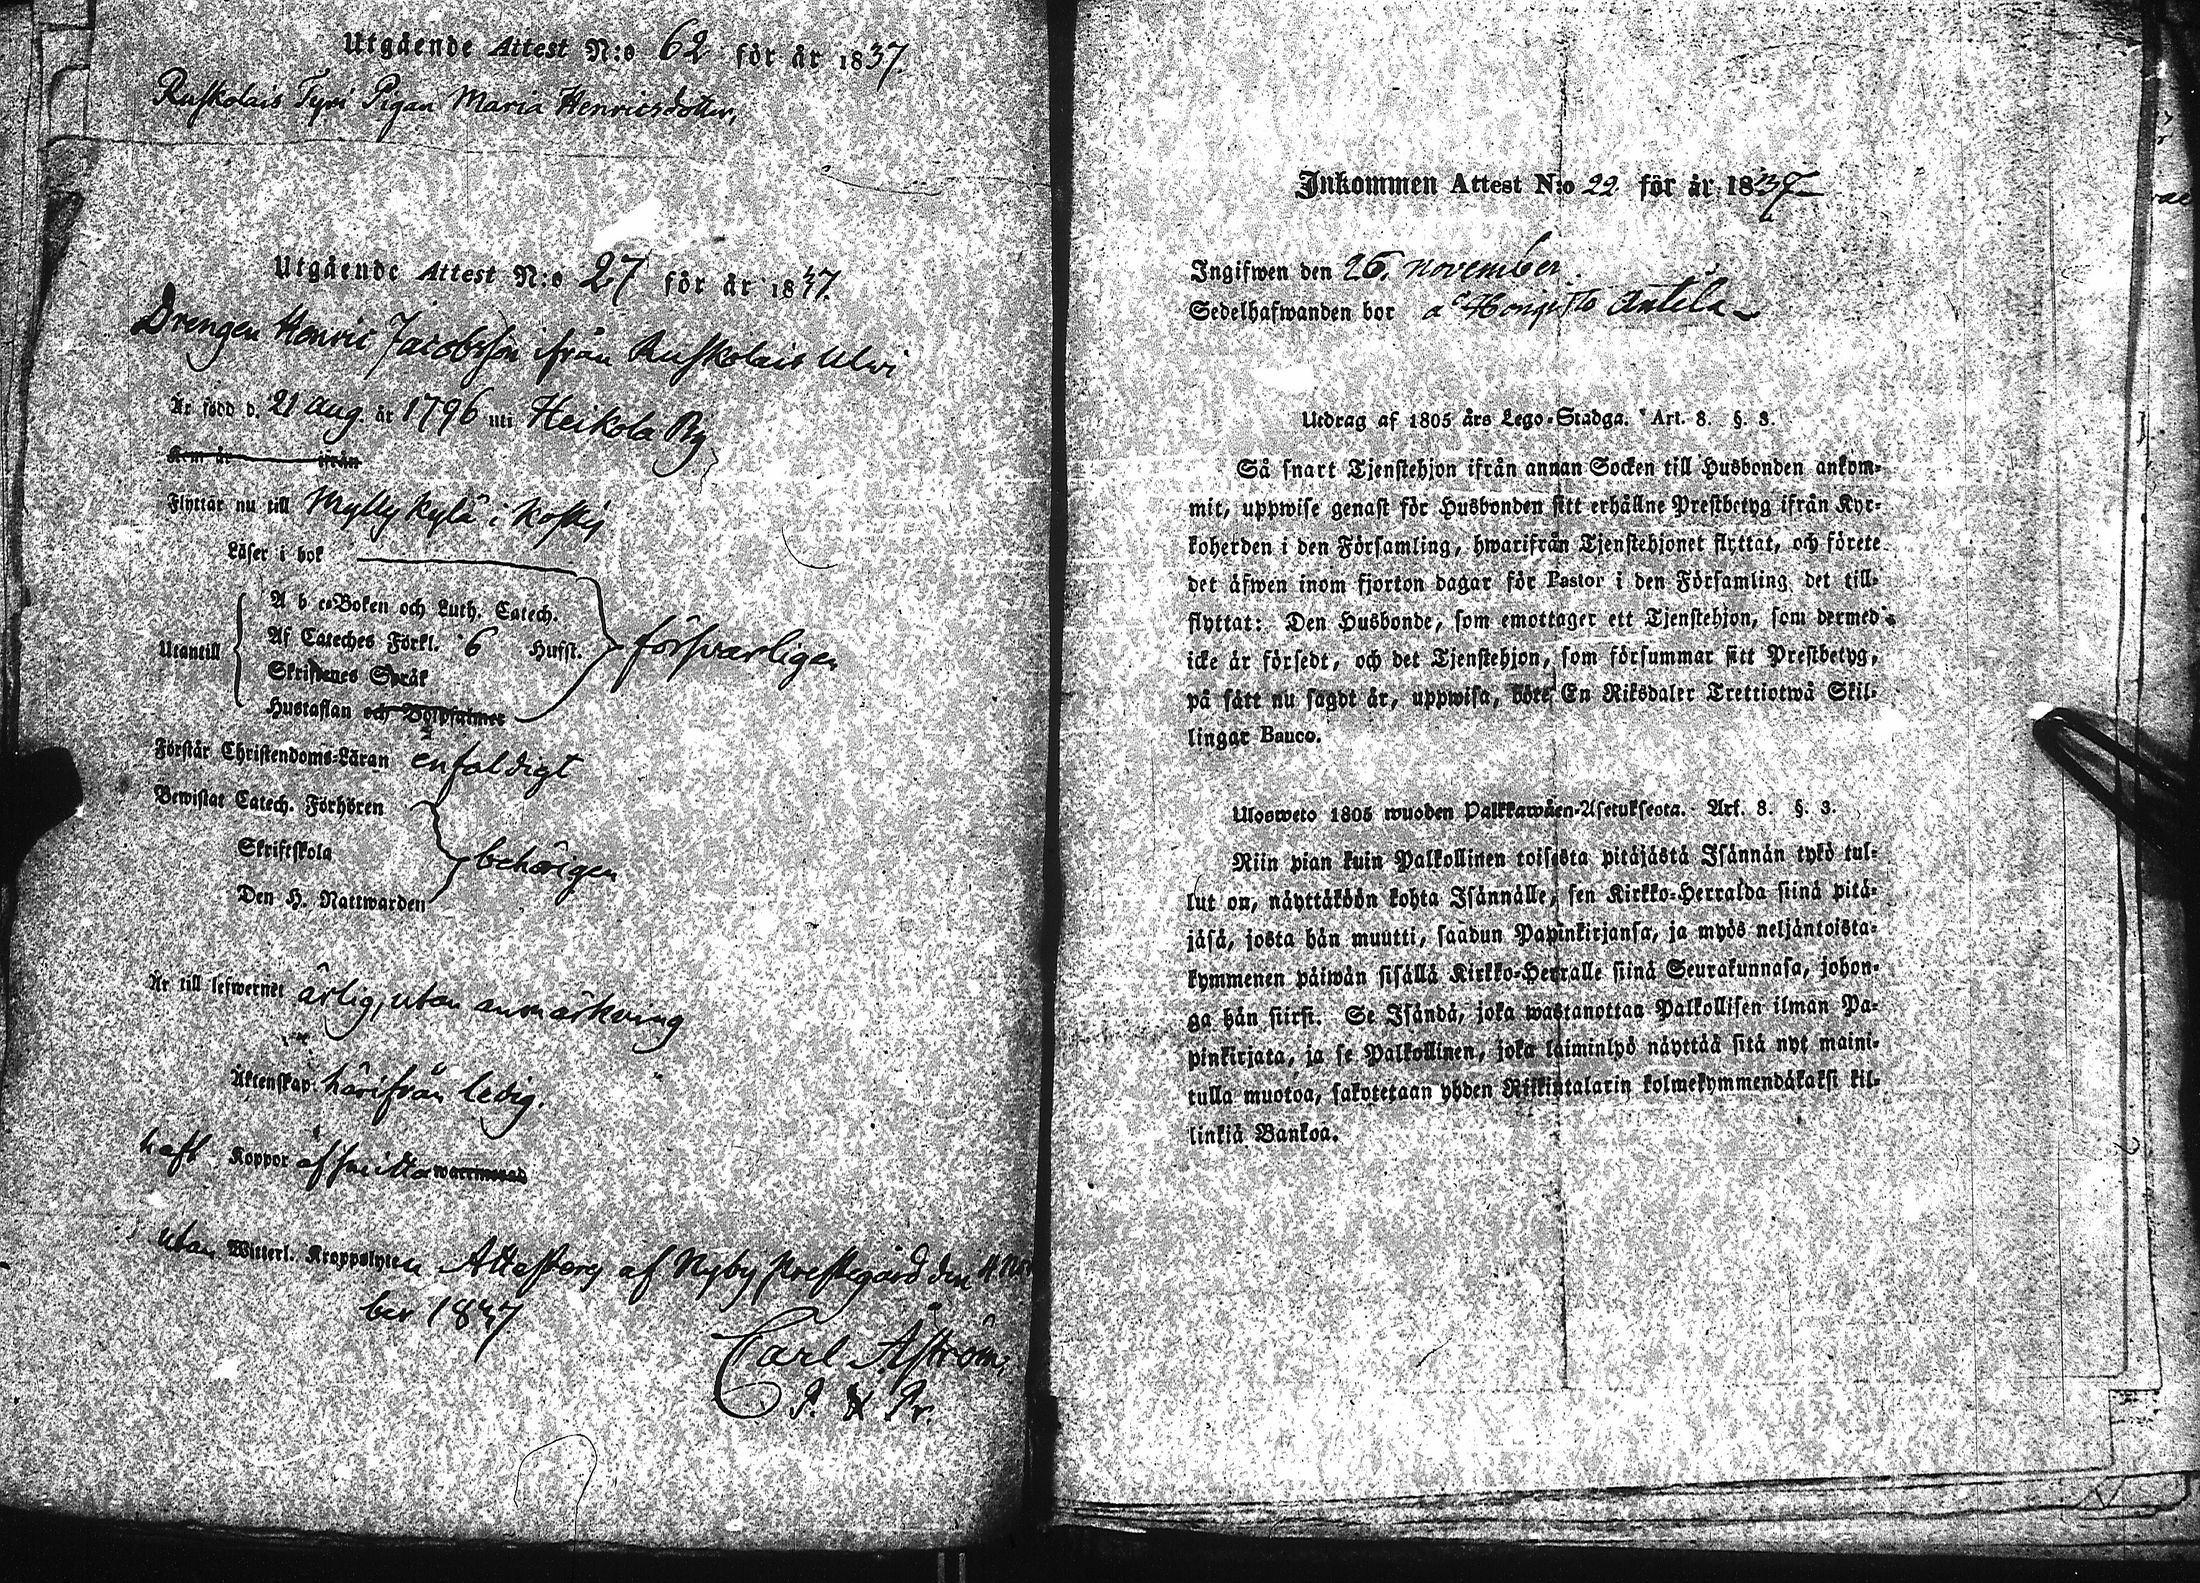 Utgående Attest N:o 62 för år 1837.
Ruskolais Tyri Pigan Maria Henricsdotter,
Utgående Attest N:o 27 för år 1837.
Drengen Henric Jacobsson ifrån Ruskolais Ulvi
Är född d. 21 Aug. år 1796 uti Heikola By
Kom år ifrån
Flyttar nu till Mylly kylä i Koskis
Läser i bok
A b c-Boken och Luth. Catech.
Af Cateches Förkl. 6 Hufst.
Utantill försvarligen
Skriftenes Språk
Hustaflan och Botpsalmer
Förstår Christendoms-Läran enfaldigt
Bewistat Catech. Förhören
Skriftskola behörigen
Den H. Nattwarden
Är till lefwernet ärlig, utan anmärkning
Äktenskap härifrån ledig.
haft Koppor
utan Witterl. Kroppslyten Attesterj af Nyby Prestegård den
ber 1837
Carl Åström,
P. Pr.
Inkommen Attest N:o 22 för år 1837
Ingifwen den 26. november.
Sedelhafwanden bor å Hongisto Antila
Utdrag af 1805 års Lego-Stadga. Art. 8. §. 3.
Så snart Tjenstehjon ifrån annan Socken till Husbonden ankom-
mit, uppwise genast för Husbonden sitt erhållne Prestbetyg ifrån Kyr-
koherden i den Församling, hwarifrån Tjenstehjonet flyttat, och förete
det äfwen inom fjorton dagar för Pastor i den Församling det till-
flyttat: Den Husbonde, som emottager ett Tjenstehjon, som dermed
icke är försedt, och det Tjenstehjon, som försummar sitt Prestbetyg,
på sätt nu sagdt är, uppwisa, böte En Riksdaler Trettiotwå Skil-
lingar Banco.
Ulosweto 1805 wuoden Palkkawäen-Asetuksesta. Art. 8. §. 3.
Niin pian kuin Palkollinen toisesta pitäjästä Isännän tykö tul-
lut on, näyttäköön kohta Isännälle, sen Kirkko-Herralda siinä pitä-
jäsä, josta hän muutti, saadun Papinkirjansa, ja myös neljäntoista-
kymmenen päiwän sisällä Kirkko-Herralle siinä Seurakunnasa, johon-
ga hän siirsi. Se Isändä, joka wastanottaa Palkollisen ilman Pa-
pinkirjata, ja se Palkollinen, joka laiminlyö näyttää sitä nyt maini-
tulla muotoa, sakotetaan yhden Riikintalarin kolmekymmendäkaksi kil-
linkiä Bankoa.